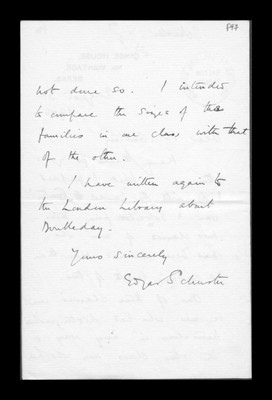 897
not done so. I intended
to compare the sizes of the
families in one class with that
of the other.
I have written again to
the London Library about
Yours sincerely
Edgar Schuster